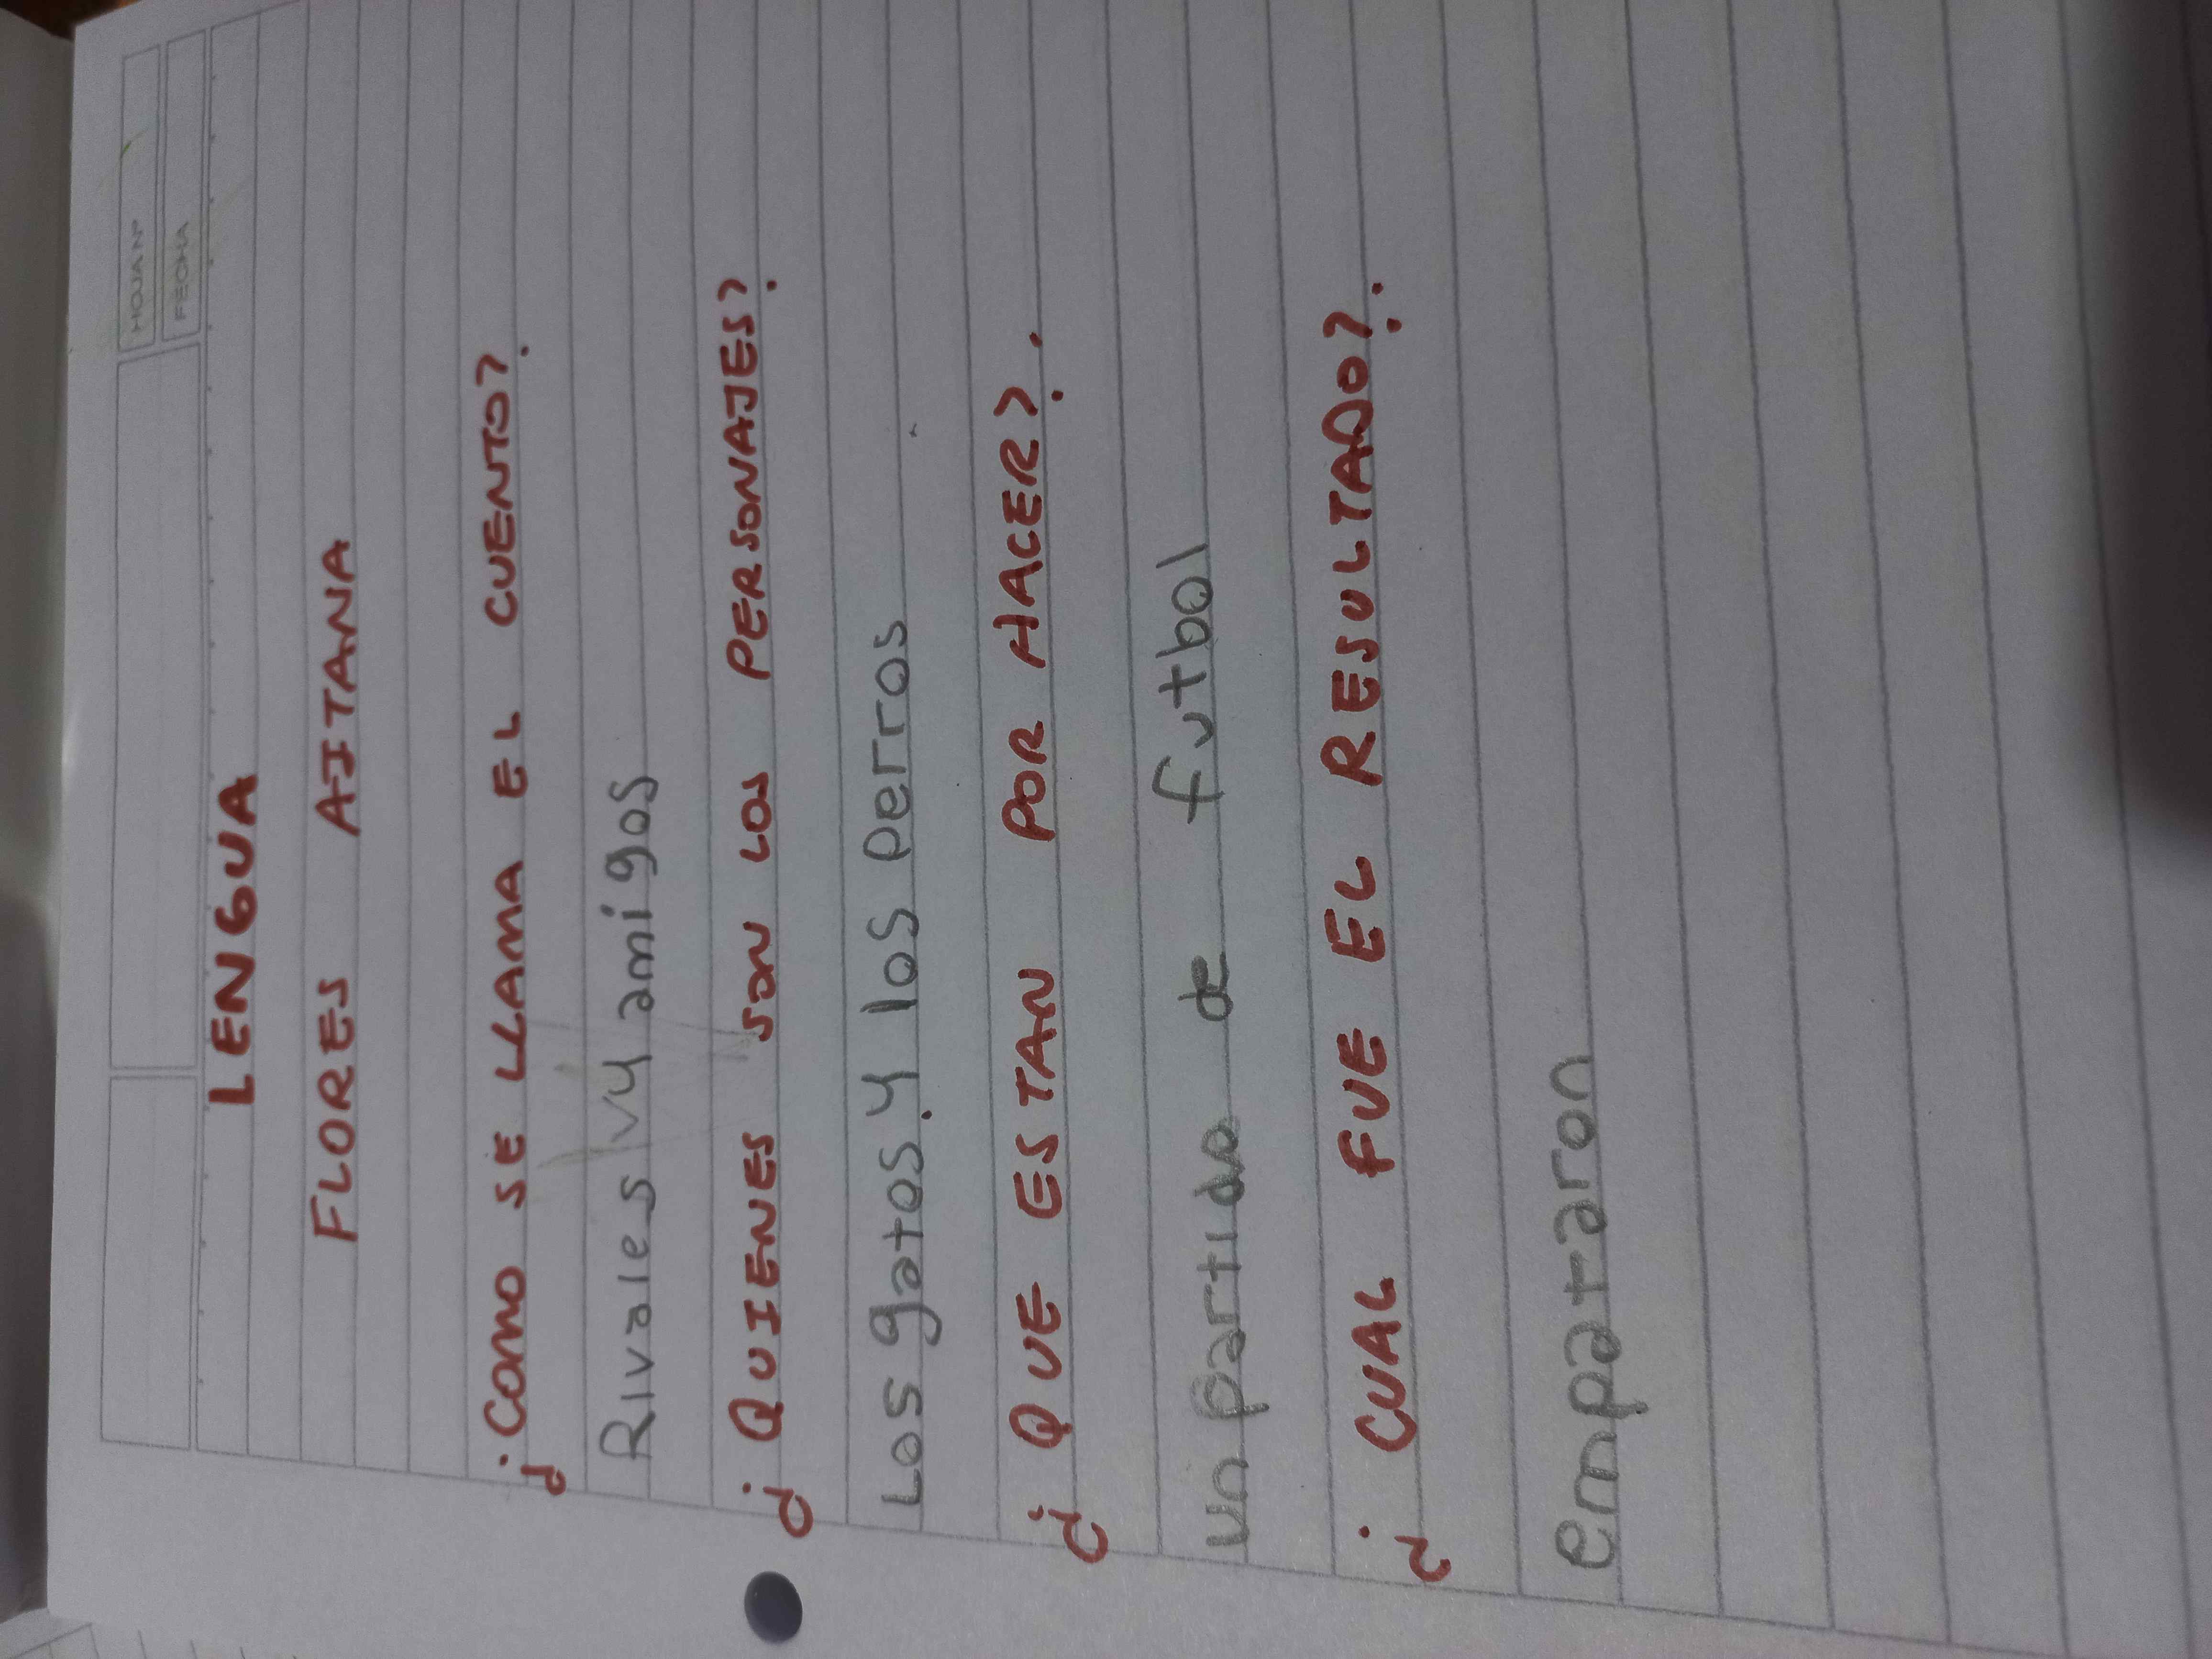 HOJA Nº
FECHA
LENGUA
FLORES AITANA
¿COMO SE LLAMA EL CUENTO?
Rivales y amigos
¿QUIENES SON LOS PERSONAJES?
Los gatos y los perros
¿QUE ESTAN POR HACER?.
un partido de futbol
¿CUAL FUE EL RESULTADO?.
empataron